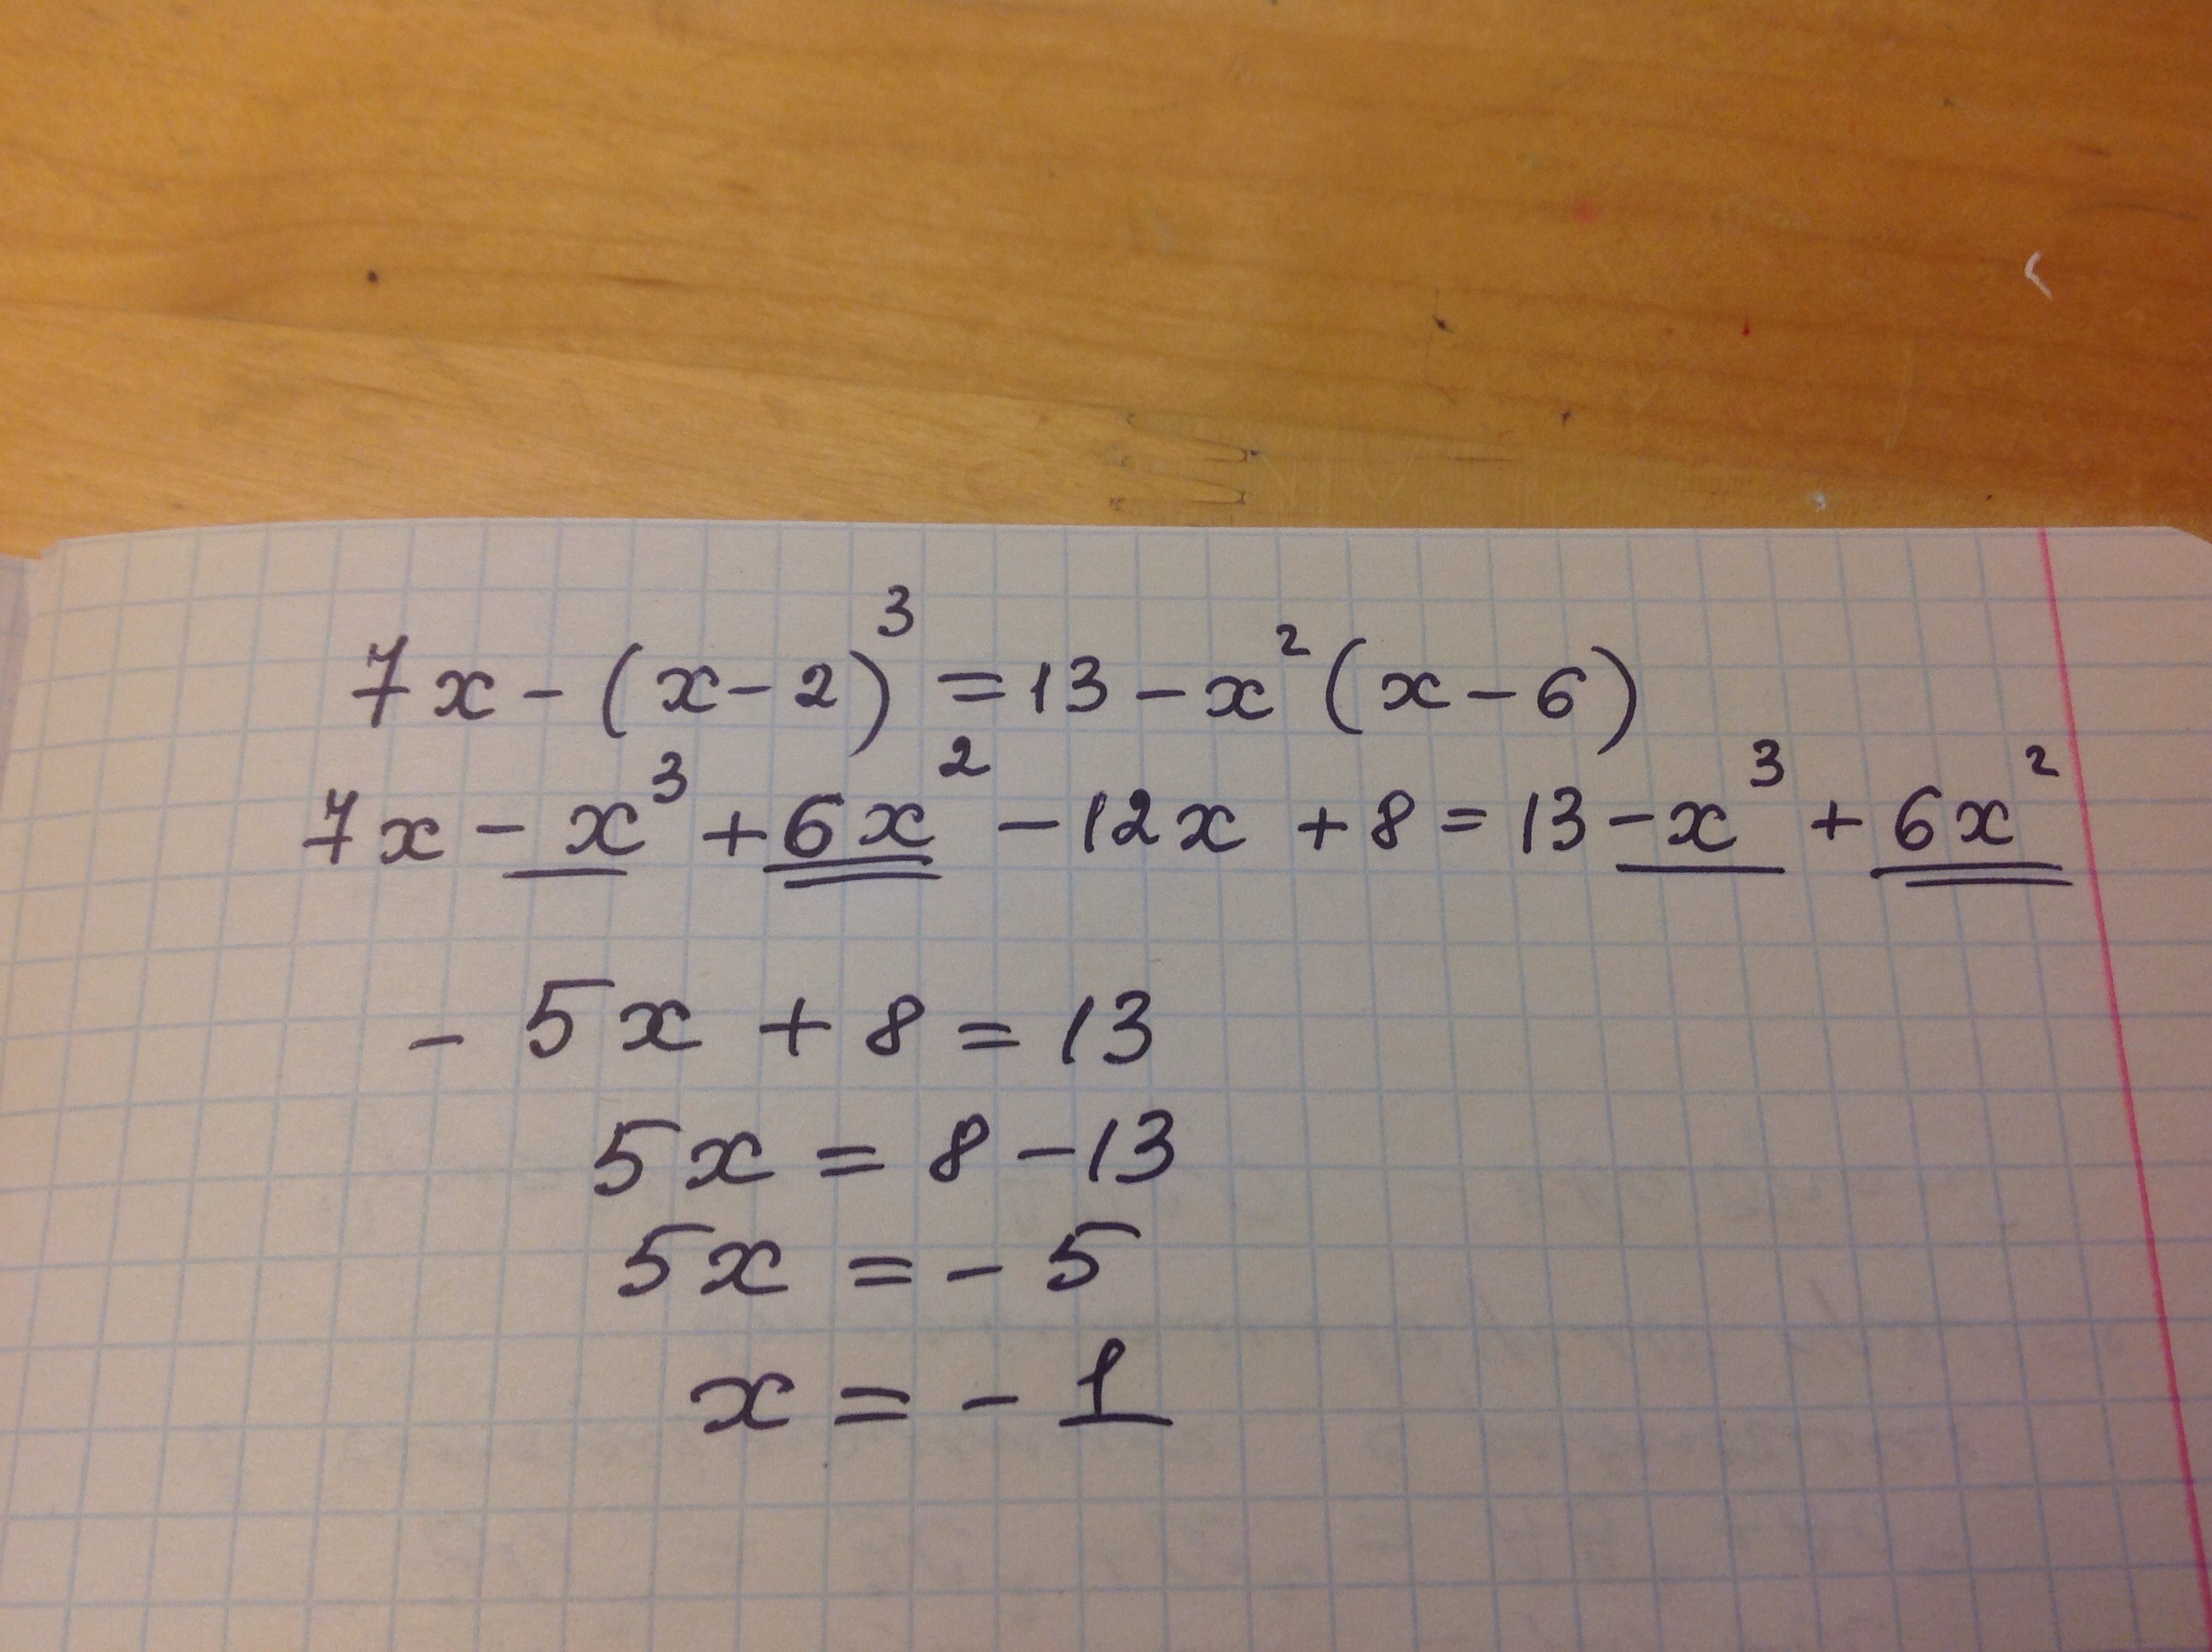 7x - (x - 2)³ = 13 - x² (x - 6)
7x - x³ + 6x² - 12x + 8 = 13 - x³ + 6x²
- 5x + 8 = 13
5x = 8 - 13
5x = - 5
x = - 1